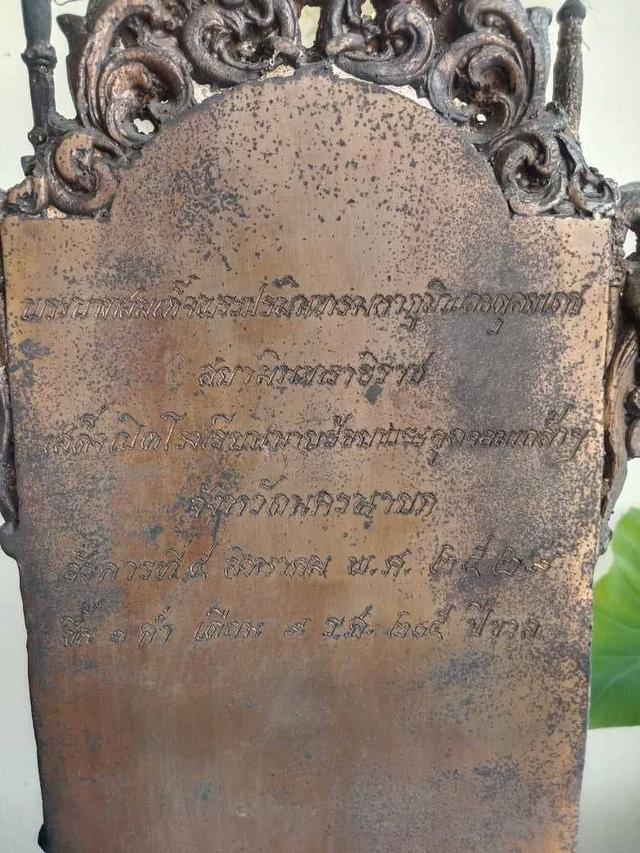 พระบาทสมเด็จพระปรมินทรมหาภูมิพลอดุลยเดช
สยามินทราธิราช
เสด็จเปิดโรงเรียนนายร้อยพระจุลจอมเกล้าฯ
จังหวัดนครนายก
อังคารที่ ๕ สิงหาคม พ.ศ. ๒๕๒๙
ขึ้น ๑ ค่ำ เดือน ๙ ร.ศ. ๒๐๕ ปีขาล